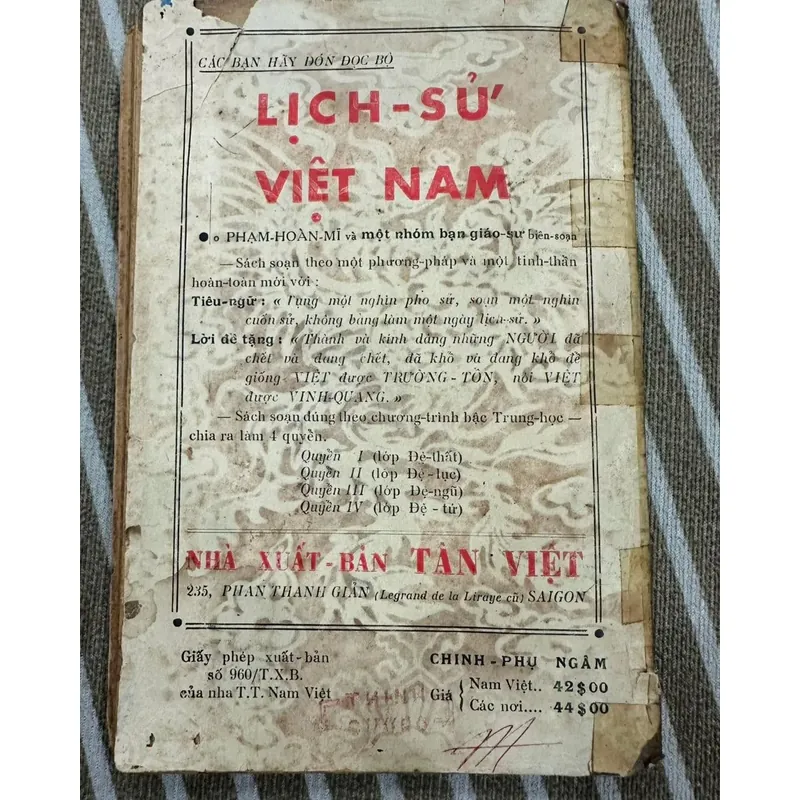 CÁC BẠN HÃY ĐÓN ĐỌC BỘ
LỊCH-SỬ
VIỆT NAM
PHẠM-HOÀN-MĨ và một nhóm bạn giáo-sư biên-soạn
—Sách soạn theo một phương-pháp và một tinh-thần
hoàn-toàn mới với :
Tiêu-ngữ : « Tụng một nghìn pho sử, soạn một nghìn
cuốn sử, không bằng làm một ngày lịch-sử. »
Lời đề tặng : « Thành và kính dâng những NGƯỜI đã
chết và đang chết, đã khổ và đang khổ để
giống VIỆT được TRƯỜNG-TỒN, nòi VIỆT
được VINH-QUANG. »
— Sách soạn đúng theo chương-trình bậc Trung-học —
chia ra làm 4 quyển.
Quyển I (lớp Đệ-thất)
Quyển II (lớp Đệ-lục)
Quyển III (lớp Đệ-ngũ)
Quyển IV (lớp Đệ-tứ)
NHÀ XUẤT-BẢN TÂN VIỆT
235, PHAN THANH GIẢN (Legrand de la Liraye cũ) SAIGON
Giấy phép xuất-bản
số 960/T.X.B.
của nha T.T. Nam Việt
CHINH-PHỤ NGÂM
Giá { Nam Việt.. 42$00
Các nơi.... 44$00